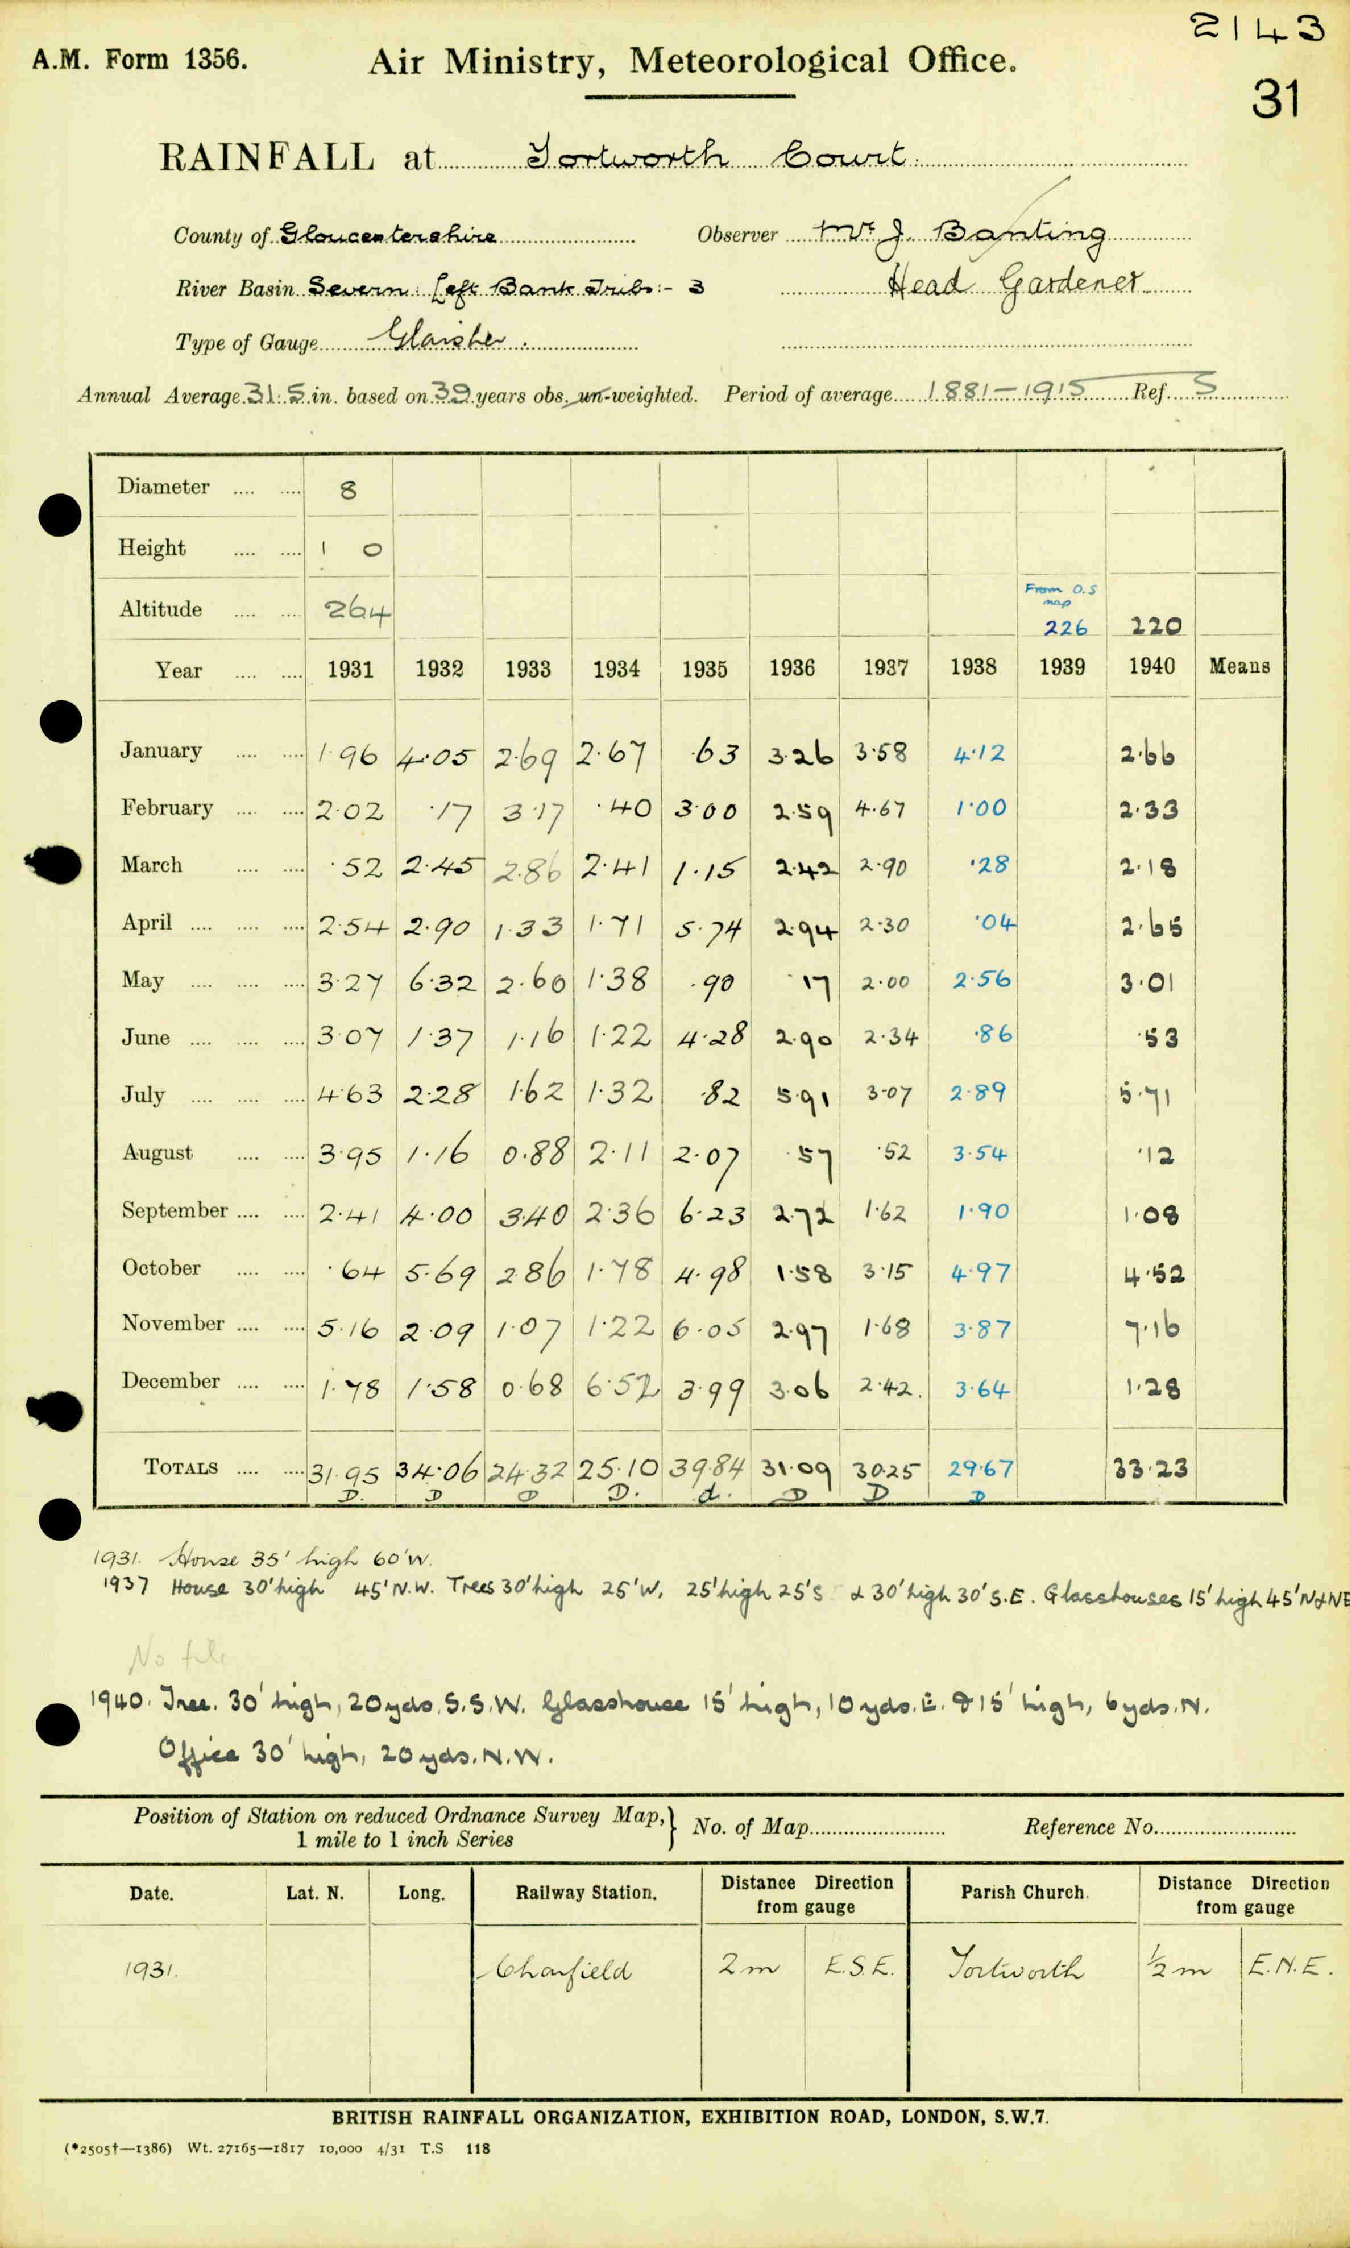 2143
A.M. Form 1356. Air Ministry, Meteorological Office.
31
RAINFALL at Tortworth Court.
County of Gloucestershire Observer Mr. J. Banting
River Basin Severn: Left Bank Tribs:- 3 Head Gardener
Type of Gauge Glaisher.
Annual Average 31.5 in. based on 39 years obs. un-weighted. Period of average 1881-1915 Ref. S
Diameter 8
Height 1 0
Altitude 264 From O.S map 226 220
Year 1931 1932 1933 1934 1935 1936 1937 1938 1939 1940 Means
January 1.96 4.05 2.69 2.67 .63 3.26 3.58 4.12 2.66
February 2.02 .17 3.17 .40 3.00 2.59 4.67 1.00 2.33
March .52 2.45 2.86 2.41 1.15 2.42 2.90 .28 2.18
April 2.54 2.90 1.33 1.71 5.74 2.94 2.30 .04 2.65
May 3.27 6.32 2.60 1.38 .90 .17 2.00 2.56 3.01
June 3.07 1.37 1.16 1.22 4.28 2.90 2.34 .86 .53
July 4.63 2.28 1.62 1.32 .82 5.91 3.07 2.89 5.71
August 3.95 1.16 0.88 2.11 2.07 .57 .52 3.54 .12
September 2.41 4.00 3.40 2.36 6.23 2.72 1.62 1.90 1.08
October .64 5.69 2.86 1.78 4.98 1.58 3.15 4.97 4.52
November 5.16 2.09 1.07 1.22 6.05 2.97 1.68 3.87 7.16
December 1.78 1.58 0.68 6.52 3.99 3.06 2.42. 3.64 1.28
TOTALS 31.95 34.06 24.32 25.10 39.84 31.09 30.25 29.67 33.23
D. D D D. d. D D D
1931. House 35' high 60'W.
1937 House 30' high 45' N.W. Trees 30' high 25' W, 25' high 25' S & 30' high 30' S.E. Glasshouses 15' high 45' N & NE
No file
1940. Tree. 30' high, 20 yds. S.S.W. Glasshouse 15' high, 10 yds. E. & 15' high, 6 yds. N.
Office 30' high, 20 yds. N.W.
Position of Station on reduced Ordnance Survey Map, } No. of Map Reference No.
1 mile to 1 inch Series
Date. Lat. N. Long. Railway Station. Distance from gauge Direction Parish Church. Distance from gauge Direction
1931. Charfield 2 m E.S.E. Tortworth ½ m E.N.E.
BRITISH RAINFALL ORGANIZATION, EXHIBITION ROAD, LONDON, S.W.7.
(*2505†—1386) Wt. 27165—1817 10,000 4/31 T.S 118